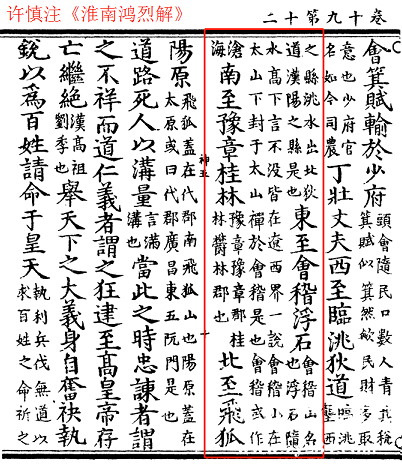 许慎注《淮南鸿烈解》
卷十九第十二
會箕賦輸於少府頭會隨民口數人責其稅箕賦似箕然斂民財多取
意也少府官名如今司農丁壯丈夫西至臨洮狄道臨洮
之縣洮水出北狄道漢陽之縣是也東至會稽浮石會稽山名也浮石隨
水高下言不没皆在遼西界一說會稽山在太山下封于太山禪於會稽是也會稽或作
滄海南至豫章桂林豫章豫章郡桂林鬱林郡也北至飛狐
陽原飛狐蓋在代郡南飛狐山也陽原蓋在太原或曰代郡廣昌東五阮門是也
道路死人以溝量言滿溝也當此之時忠諫者謂
之不祥而道仁義者謂之狂逮至高皇帝存
亡繼絕漢高祖劉季也舉天下之大義身自奮袂執
銳以爲百姓請命于皇天執利兵伐無道以求百姓之命祈之